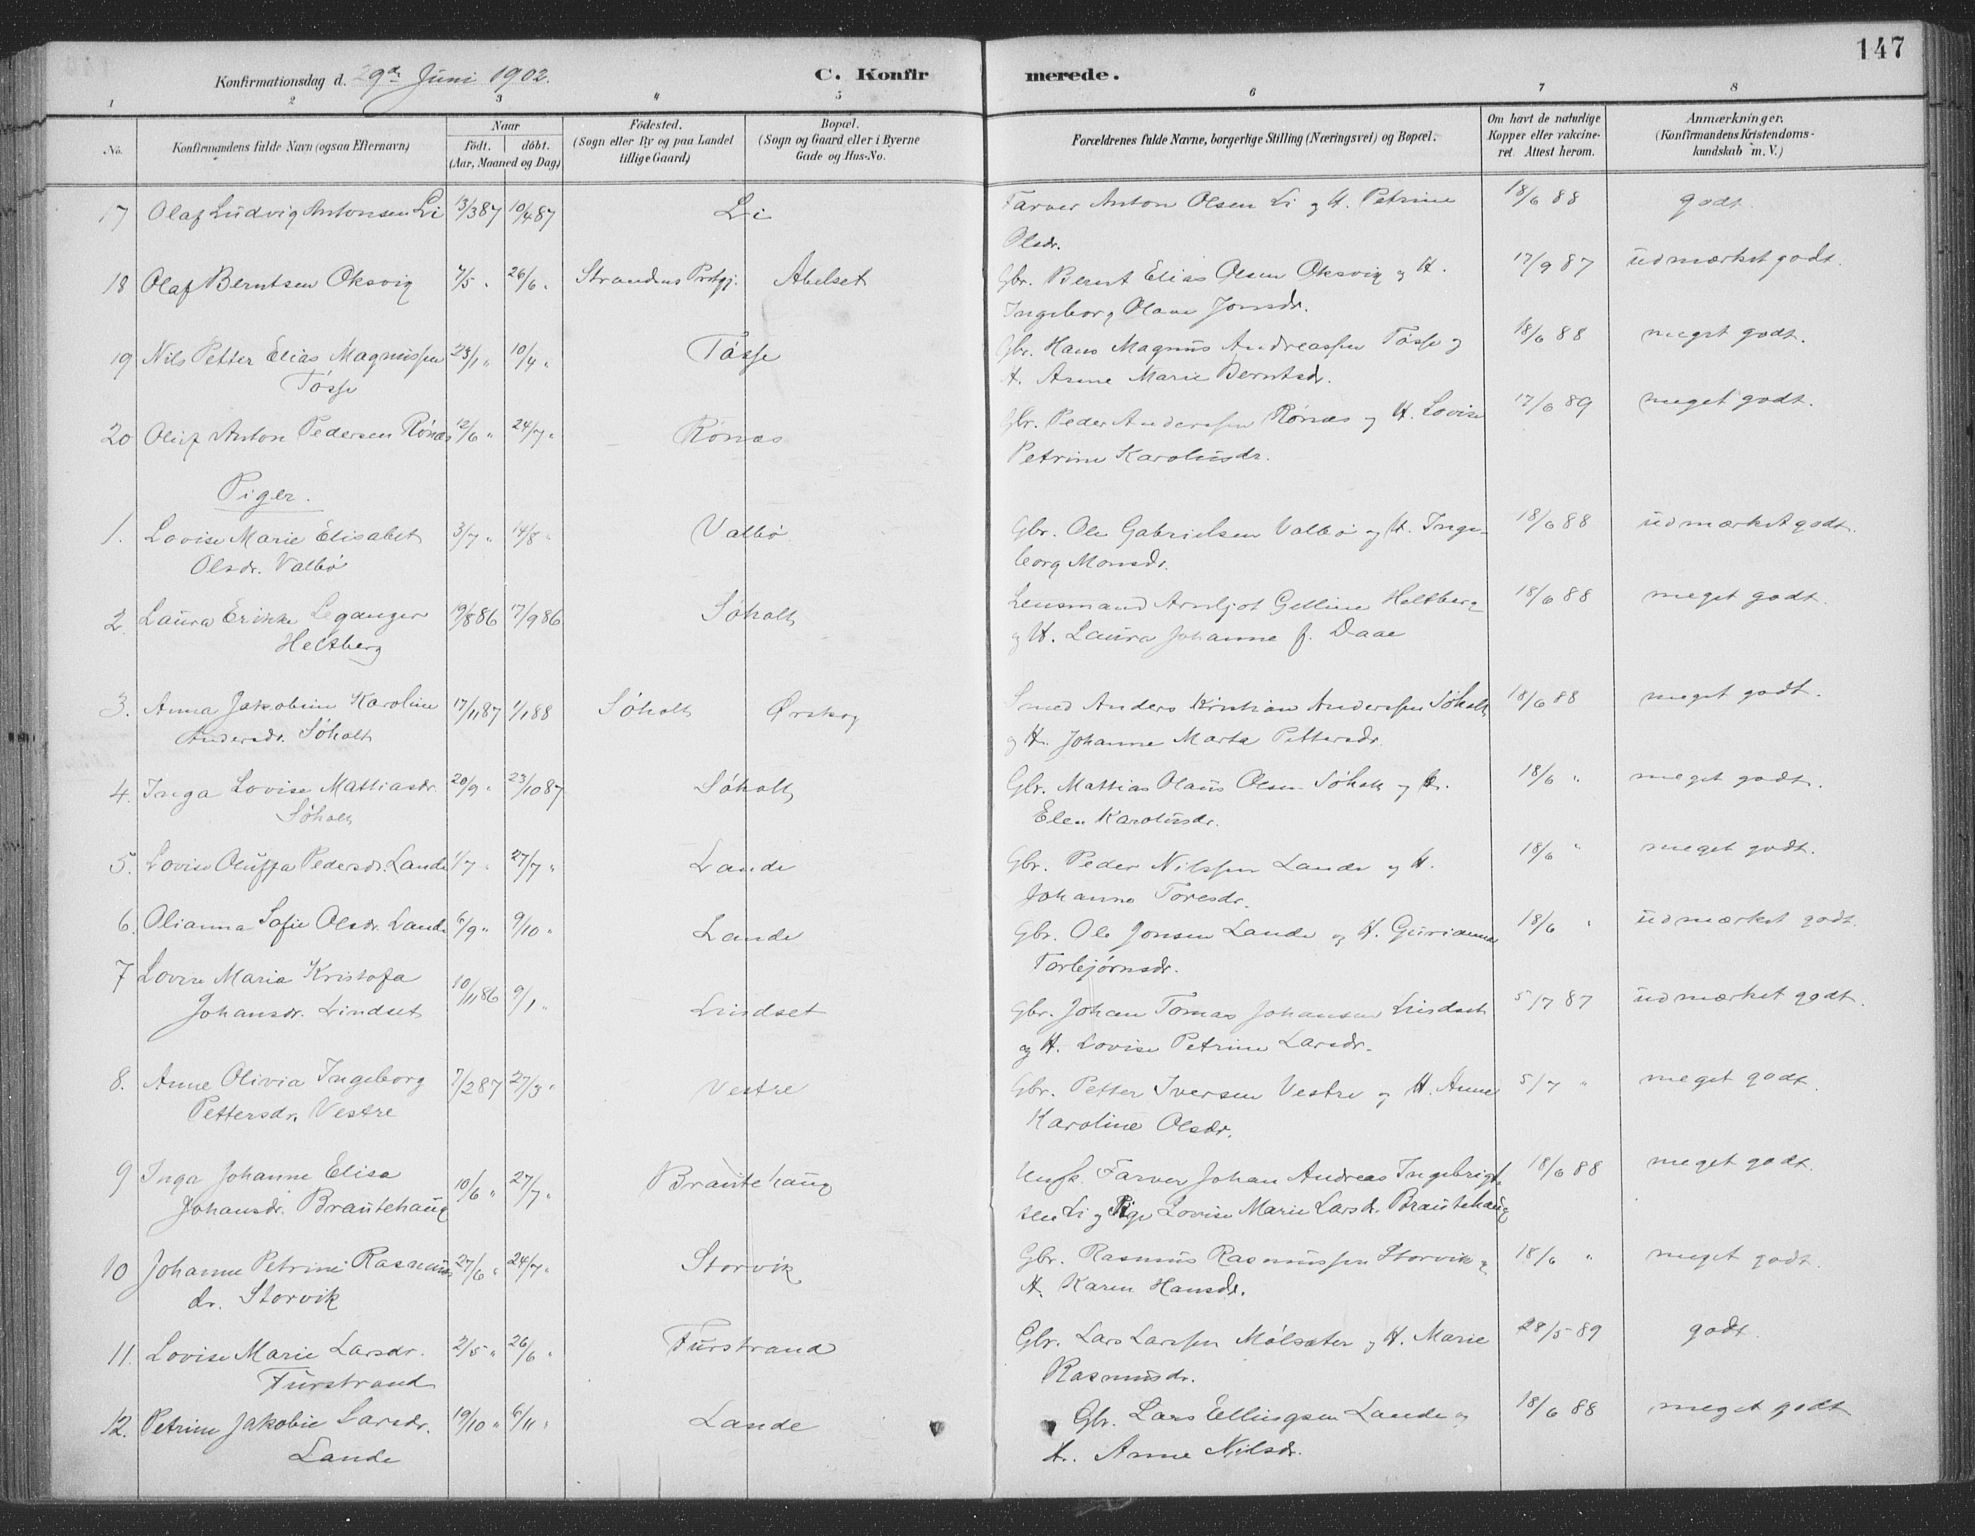 147
Konfirmationsdag d. 29de Juni 1902.
C. Konfirmerede.
1 2 3 4 5 6 7 8
No. Konfirmandens fulde Navn (ogsaa Efternavn) Naar født. døbt. (Aar, Maaned og Dag) Fødested. (Sogn eller By og paa Landet tillige Gaard) Bopæl. (Sogn og Gaard eller i Byerne Gade og Hus-No. Forældrenes fulde Navne, borgerlige Stilling (Næringsvei) og Bopæl. Om havt de naturlige Kopper eller vaksineret. Attest herom. Anmærkninger. (Konfirmandens Kristendomskundskab m. V.)
17 Olaf Ludvig Antonsen Li 13/3 87 10/4 87 Li Farver Anton Olsen Li og H. Petrine 18/6 88 godt.
Olsdr.
18 Olaf Berntsen Oksvig 7/5 " 26/6 " Strandens Prstgj. Abelset Gbr. Bernt Elias Olsen Oksvig og H. 17/9 87 udmærket godt.
Ingeborg Olave Jonsdr.
19 Nils Petter Elias Magnussen 23/1 " 10/4 " Tøsse Gbr. Hans Magnus Andreassen Tøsse og 18/6 88 meget godt.
Tøsse H. Anne Marie Berntsdr.
20 Oluf Anton Pedersen Rønæs 12/6 " 24/7 " Rønæs Gbr. Peder Anderssen Rønæs og H. Lovise 17/6 89 meget godt.
Petrine Karolusdr.
Piger.
1. Lovise Marie Elisabet 3/7 " 14/8 " Valbø Gbr. Ole Gabrielsen Valbø og H. Inge- 18/6 88 udmærket godt.
Olsdr. Valbø borg Monsdr.
2. Laura Erikke Leganger 19/8 86 17/9 86 Søholt Lensmand Arnljot Gelline Heltberg 18/6 88 meget godt.
Heltberg og H. Laura Johanne f. Daae
3. Anna Jakobine Karoline 17/11 87 1/1 88 Søholt Ørskog Smed Anders Kristian Anderssen Søholt 18/6 88 meget godt.
Andersdr. Søholt og H. Johanne Marta Pettersdr.
4. Inga Lovise Mattiasdr. 20/9 " 23/10 87 Søholt Gbr. Mattias Olaus Olsen Søholt og H. 18/6 " meget godt.
Søholt Elen Karolusdr.
5. Lovise Oluffa Pedersdr. Lande 1/7 " 27/7 " Lande Gbr. Peder Nilssen Lande og H. 18/6 " meget godt.
Johanne Toresdr.
6. Olianna Sofie Olsdr. Lande 6/9 " 9/10 " Lande Gbr. Ole Jonsen Lande og H. Gurianna 18/6 " udmærket godt.
Torbjørnsdr.
7 Lovise Maria Kristofa 10/11 86 9/1 " Lindset Gbr. Johan Tomas Johansen Lindset 5/7 87 udmærket godt.
Johansdr. Lindset og H. Lovise Petrine Larsdr.
8. Anne Olivia Ingeborg 7/2 87 27/3 " Vestre Gbr. Petter Iversen Vestre og H. Anne 5/7 " meget godt.
Pettersdr. Vestre Karoline Olsdr.
9 Inga Johanne Elisa 10/6 " 27/7 " Brautehaug Ungk. Farver Johan Andreas Ingebrigt- 18/6 88 meget godt.
Johansdr. Brautehaug sen Li og Pige Lovise Marie Larsdr. Brautehaug
10 Johanne Petrine Rasmus 27/6 " 24/7 " Storvik Gbr. Rasmus Rasmussen Storvik og 18/6 " meget godt.
dr. Storvik H. Karen Hansdr.
11. Lovise Marie Larsdr. 2/5 " 26/6 " Furstrand Gbr. Lars Larssen Mølsæter og H. Marie 28/5 89 godt.
Furstrand Rasmusdr.
12. Petrine Jakobie Larsdr. 19/10 " 6/11 " Lande Gbr. Lars Ellingsen Lande og 18/6 88 meget godt
Lande H. Anne Nilsdr.